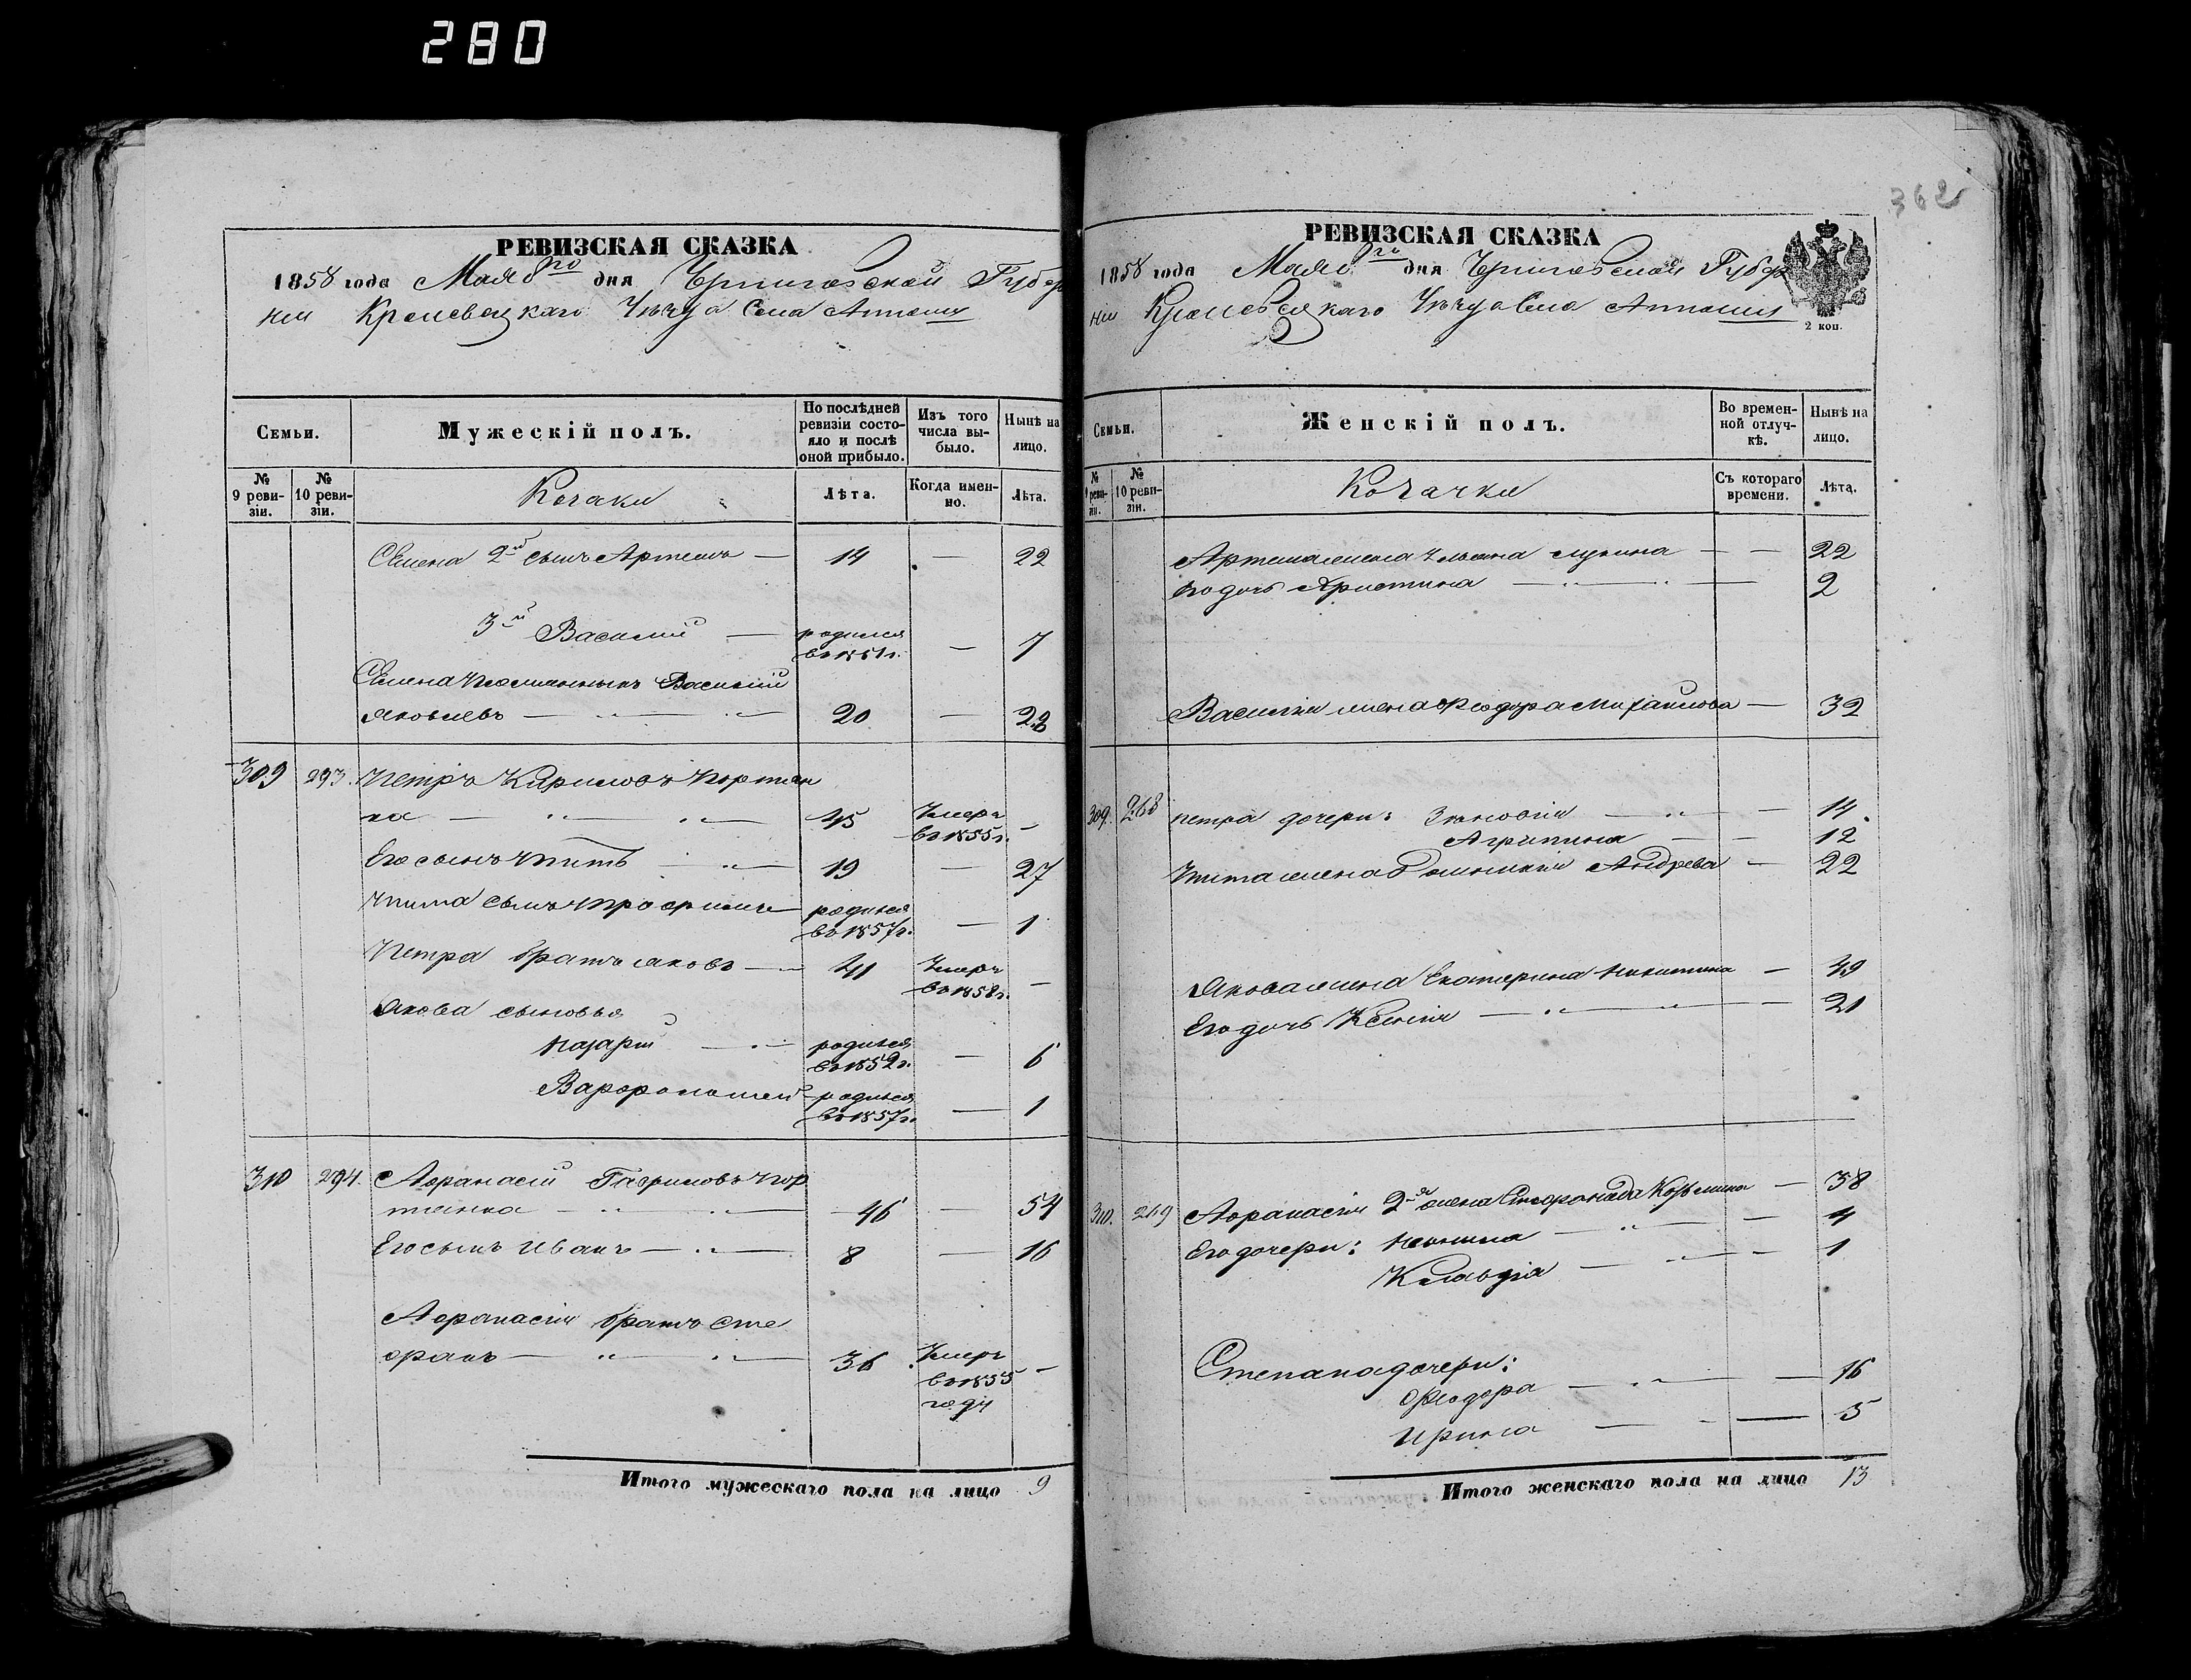 280
362
РЕВИЗСКАЯ СКАЗКА
1858 года Мая 6го дня Черниговской Губер
нии Кролевецкаго Уѣзда Села
Семьи.
Мужескій полъ.
По послѣдней ревизіи состояло и послѣ оной прибыло.
Изъ того числа выбыло.
Нынѣ на лицо.
№ 9 ревизіи.
№ 10 ревизіи.
Козаки
Лѣта.
Когда именно.
Лѣта.
Семена 2й сынъ Артемъ — 14 — 22
3й Василий — родился въ 1851г. — 7
Семена Василий
Яковлевъ — 20 —
309 293. Петръ Кириловъ Портян
ка — 45 Умеръ въ 1855г. —
Его сынъ Титъ — 19 — 27
Тита сынъ Трофимъ — родился въ 1857г. — 1
Петра братъ Яковъ — 41 Умеръ въ 1858г. —
Якова сыновья
Назарій — родился въ 1852г. — 6
Варфоломей родился въ 1857г. — 1
310 294. Афанасій Гавриловъ Пор
тянка — 46 — 54
Его сынъ Иванъ — 8 — 16
Афанасія братъ Сте
фанъ — 36 Умеръ въ 1855 году —
Итого мужескаго пола на лицо 9
РЕВИЗСКАЯ СКАЗКА
1858 года Мая 6го дня Черниговской Губер
нии Кролевецкаго Уѣзда Села
2 коп.
Семьи.
Женскій полъ.
Во временной отлучкѣ.
Нынѣ на лицо.
№ 9 ревизіи.
№ 10 ревизіи.
Козачки
Съ котораго времени.
Лѣта.
Артема жена Ульяна Лукина — — 22
Его дочь Христина — — 2
Василия жена Феодора Михайлова — 32
309. 268 Петра дочери: Зиновія — — 14
Агрипина — — 12
Тита жена Домникія Андрева — 22
Якова жена Екатерина Никитина — 49
Его дочь Ксенія — — 21
310. 269 Афанасія 2я жена Стефанида Козьмина — 38
Его дочери: Неонила — — 4
Клавдія — — 1
Степана дочери:
Феодора — — 16
Ирина — — 5
Итого женскаго пола на лицо 13